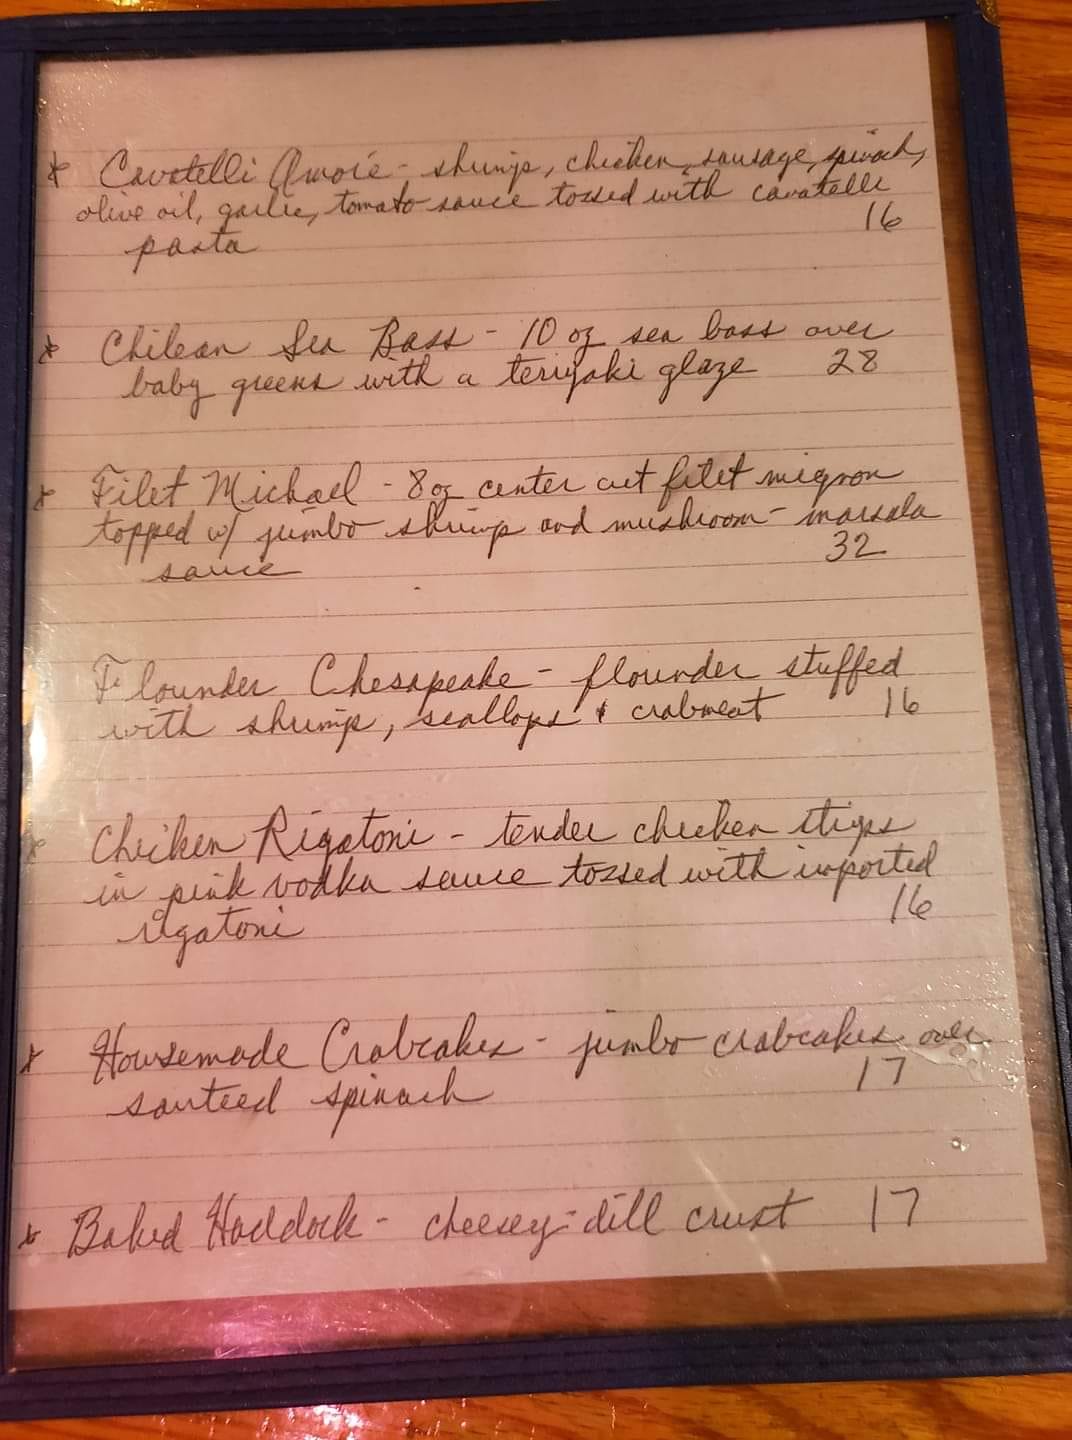 * Cavatelli Amore - shrimp, chicken, sausage, spinach,
olive oil, garlic, tomato sauce tossed with cavatelli
pasta 16
* Chilean Sea Bass - 10 oz sea bass over
baby greens with a teriyaki glaze 28
* Filet Michael - 8 oz center cut filet mignon
topped w/ jumbo shrimp and mushroom - marsala
sauce 32
Flounder Chesapeake - flounder stuffed
with shrimp, scallops & crabmeat 16
* Chicken Rigatoni - tender chicken strips
in pink vodka sauce tossed with imported
rigatoni 16
* Housemade Crabcakes - jumbo crabcakes over
sauteed spinach 17
* Baked Haddock - cheesey-dill crust 17